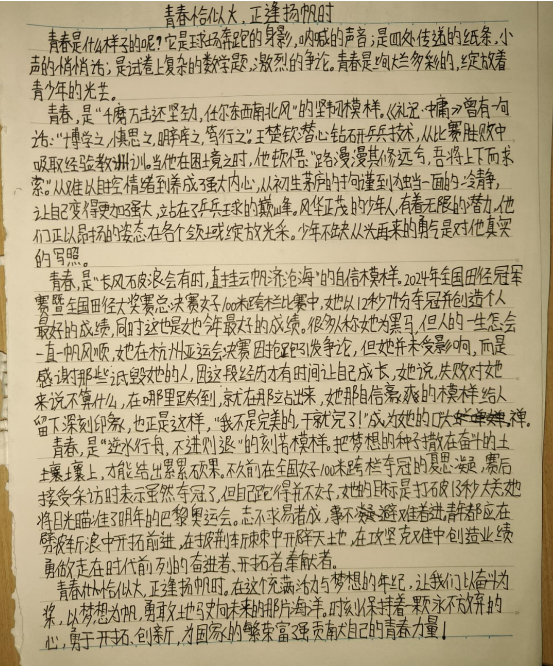 青春恰似火,正逢扬帆时
青春是什么样子的呢?它是球场奔跑的身影,呐喊的声音;是四处传送的纸条,小
声的悄悄话;是试卷上复杂的数学题,激烈的争论。青春是绚烂多彩的,绽放着
青少年的光芒。
青春,是“千磨万击还坚劲,任尔东西南北风”的坚韧模样。《礼记·中庸》曾有一句
话:“博学之,慎思之,明辨之,笃行之”。王楚钦潜心钻研乒乓技术,从比赛胜败中
吸取经验教训。当他在困境之时,他顿悟:“路漫漫其修远兮,吾将上下而求
索”。从难以自控情绪到养成了强大内心,从初生茅庐的拘谨到独当一面的冷静,
让自己变得更加强大,站在了乒乓球的巅峰。风华正茂的少年人,有着无限的潜力,他
们正以昂扬的姿态在各个领域绽放光采。少年不缺从头再来的勇气是对他真实
的写照。
青春,是“长风破浪会有时,直挂云帆济沧海”的自信模样。2024年全国田径冠军
赛暨全国田径大奖赛总决赛女子100米跨栏比赛中,她以12秒74分夺冠并创造个人
最好的成绩,同时这也是她今年最好的成绩。很多人称她为黑马,但人的一生怎会
一直一帆风顺,她在杭州亚运会决赛因抢跑引发争论,但她并未受影响,而是
感谢那些诋毁她的人,因这段经历才有时间让自己成长,她说,失败对她
来说不算什么,在哪里跌倒,就在那站出来,她那自信豪爽的模样给人
留下深刻印象,也正是这样,“我不是完美的,干就完了!”成为她的口头禅。
青春,是“逆水行舟,不进则退”的刻苦模样。把梦想的种子撒在奋斗的土
壤土壤上,才能结出累累硕果。不久前在全国女子100米跨栏夺冠的夏思凝,赛后
接受采访时表示虽然夺冠了,但自己跑得并不好,她的目标是打破13秒大关,她
将目光瞄准了明年的巴黎奥运会。志不求易者成,事不避难者进,青年都应在
劈波斩浪中开拓前进,在披荆斩棘中开辟天地,在攻坚克难中创造业绩
勇做走在时代前列的奋进者、开拓者、奉献者。
青春恰似火,正逢扬帆时。在这个充满活力与梦想的年纪,让我们以奋斗为
桨,以梦想为帆,勇敢地驶向未来的那片海洋,时刻保持着一颗永不放弃的
心,勇于开拓、创新,为国家的繁荣富强贡献自己的青春力量!